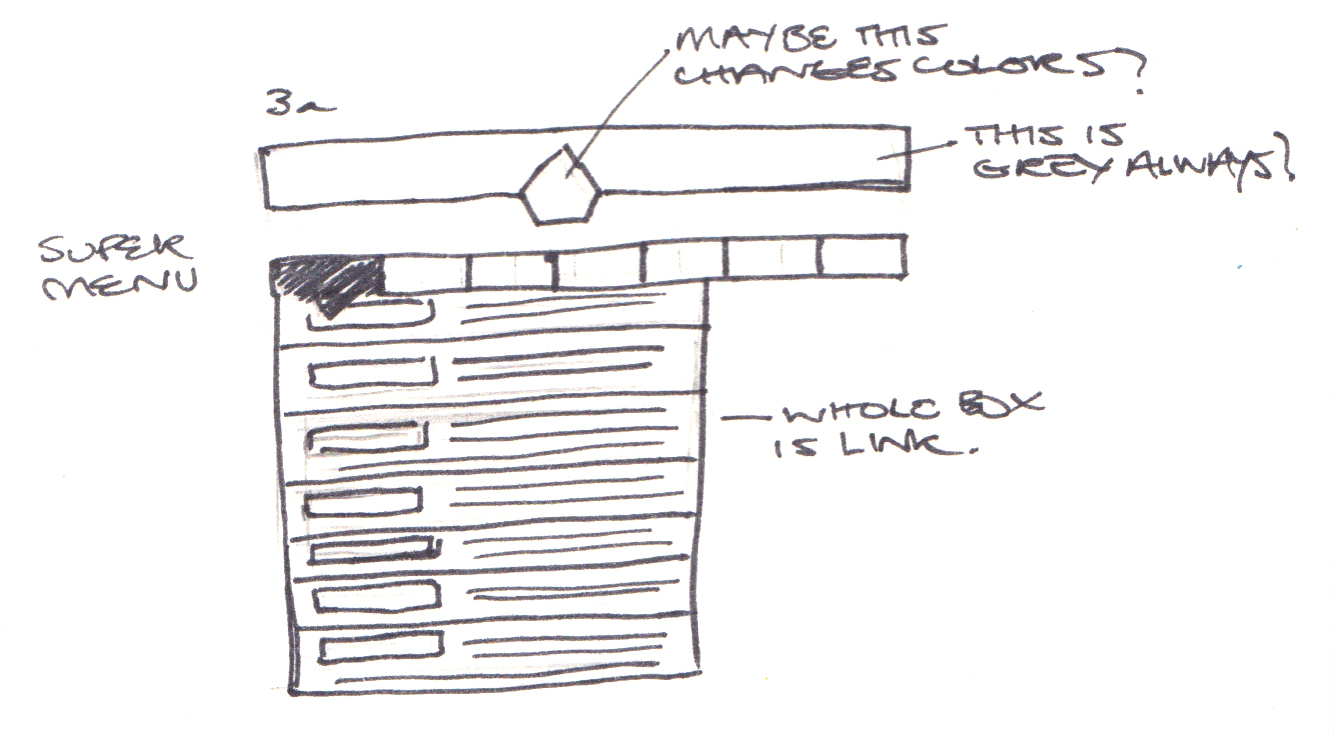 MAYBE THIS
CHANGES COLORS?
3a
THIS IS
GREY ALWAYS?
SUPER
MENU
WHOLE BOX
IS LINK.